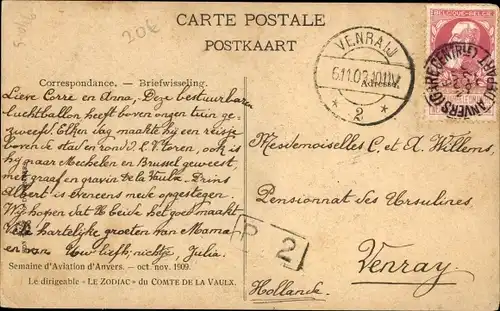 CARTE POSTALE
POSTKAART
Correspondance. — Briefwisseling.
Lieve Corre en Anna, Deze bestuurbaren
luchtballon heeft boven ongen tuin ge-
zweefd. Elken dag maakte hij een reisje
boven de stad en rond O. L. V. toren, ook is
hij naar Mechelen en Brussel geweest
met graaf en gravin de la Vaulx. Prins
Albert is eveneens mede opgestegen
Wij hopen dat U beide het goed maakt
Vele hartelijke groeten van Mama
en van Uw liefh. nichtje, Julia.
Semaine d'Aviation d'Anvers. — oct. nov. 1909.
Le dirigeable « LE ZODIAC » du COMTE DE LA VAULX.
VENRAIJ
2
Adresse.
BELGIQUE-BELGIË
ANVERS
Mesdemoiselles C. et A. Willems,
Pensionnat des Ursulines
Venray.
Hollande.
2
206